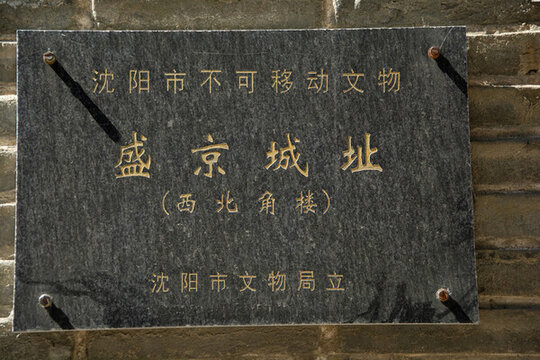 沈阳市不可移动文物
盛京城址
(西北角楼)
沈阳市文物局立